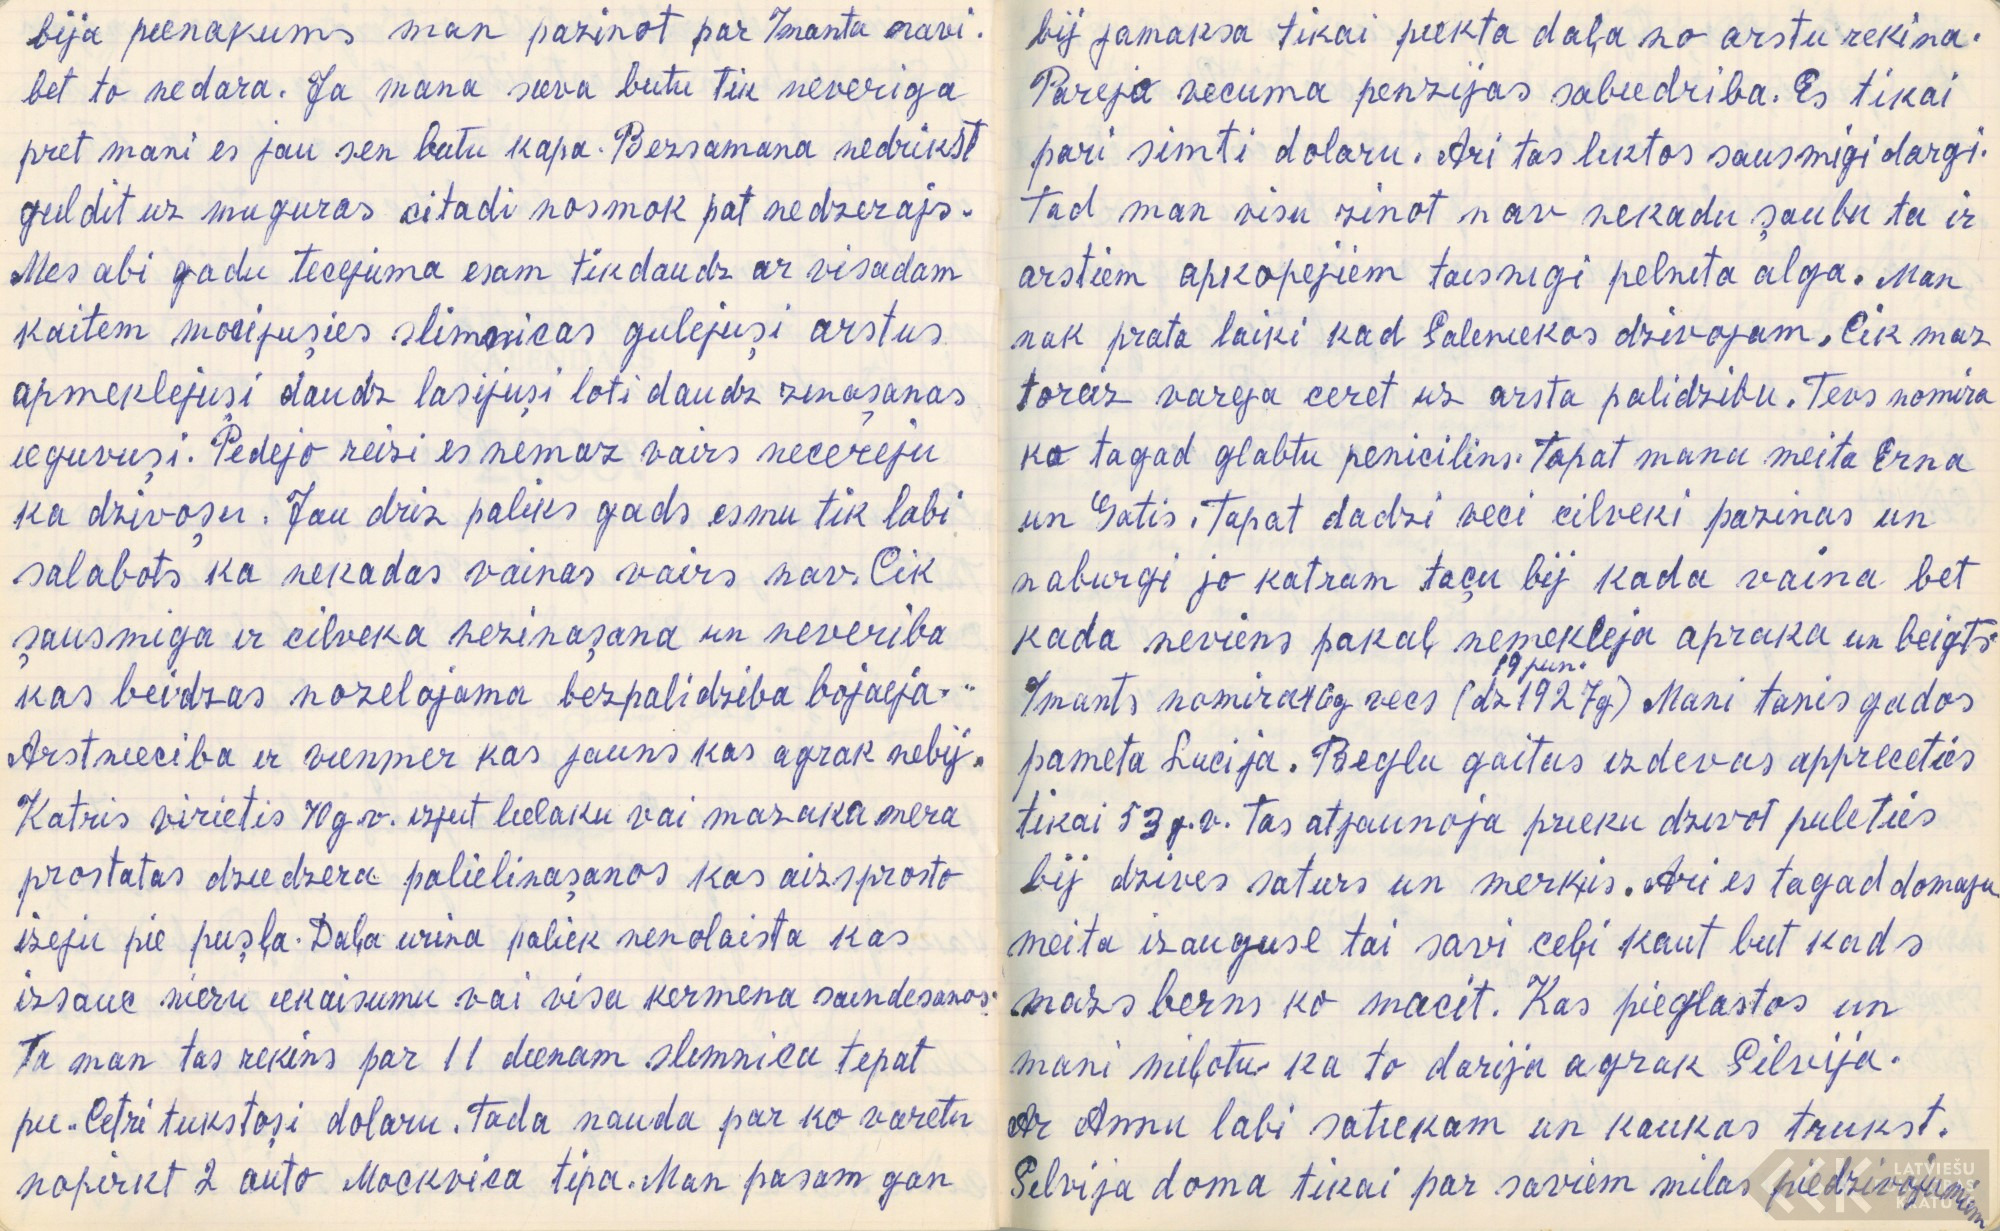 bija peenakums man pazinot par Imanta navi.
bet to nedara. Ja mana seeva butu tik neveriga
pret mani es jau sen butu kapa. Bezsamana nedrikst
guldit uz muguras citadi nosmok pat nedzerajs.
Mes abi gadu tecejuma esam tikdaudz ar visadam
kaitem mocijuşies slimnicas gulejuşi arstus
apmeklejuşi daudz lasijuşi loti daudz zinaşanas
ieguvuşi. Pedejo reizi es nemaz vairs necereju
ka dzivoşu. Jau driz paliks gads esmu tik labi
salabots ka nekadas vainas vairs nav. Cik
şausmiga ir cilveka nezinaşana un neveriba
kas beidzas nozelojama bezpalidziba bojaeja.
Arstnieciba ir vienmer kas jauns kas agrak nebij.
Katris virietis 70 g.v. izjut lielaku vai mazaka mera
prostatas dziedzera palielinaşanos kas aizsprosto
izeju pie puşļa. Daļa urina paliek nenolaista kas
izsauc nieru iekaisumu vai visa kermena saindesanos.
Ta man tas rekins par 11 dienam slimnica tepat
pie.. Cetri tukstoşi dolaru. Tada nauda par ko varetu
nopirkt 2 auto Mockvica tipa. Man pasam gan
bij jamaksa tikai piekta daļa no arstu rekina.
Pareja vecuma penzijas sabiedriba. Es tikai
pari simti dolaru. Ari tas liktos sausmigi dargi.
Tad man visu zinot nav nekadu şaubu ta ir
arstiem apkopejiem taisnigi pelnita alga. Man
nak prata laiki kad Galeniekos dzivojam. Cik maz
toreiz vareja ceret uz arsta palidzibu. Tevs nomira
ko tagad glabtu penicilins. Tapat mana meita Erna
un Gatis. Tapat dadzi veci cilveki pazinas un
naburgi jo katram taçu bij kada vaina bet
kada neviens pakaļ nemekleja apraka un beigts.
19 jun.
Imants nomira 46g vecs (dz 1927g) Mani tanis gados
pameta Lucija. Beglu gaitas izdevas appreceties
tikai 53 g.v. Tas atjaunoja prieku dzivot puleties
bij dzives saturs un merķis. Ari es tagad domaju
meita izauguse tai savi ceļi kaut but kads
mazs berns ko macit. Kas pieglastos un
mani miļotu ka to darija agrak Silvija.
Ar Annu labi satiekam un kaukas trukst.
Silvija doma tikai par saviem milas piedzivojumiem
LATVIEŠU
KRĀTUVE